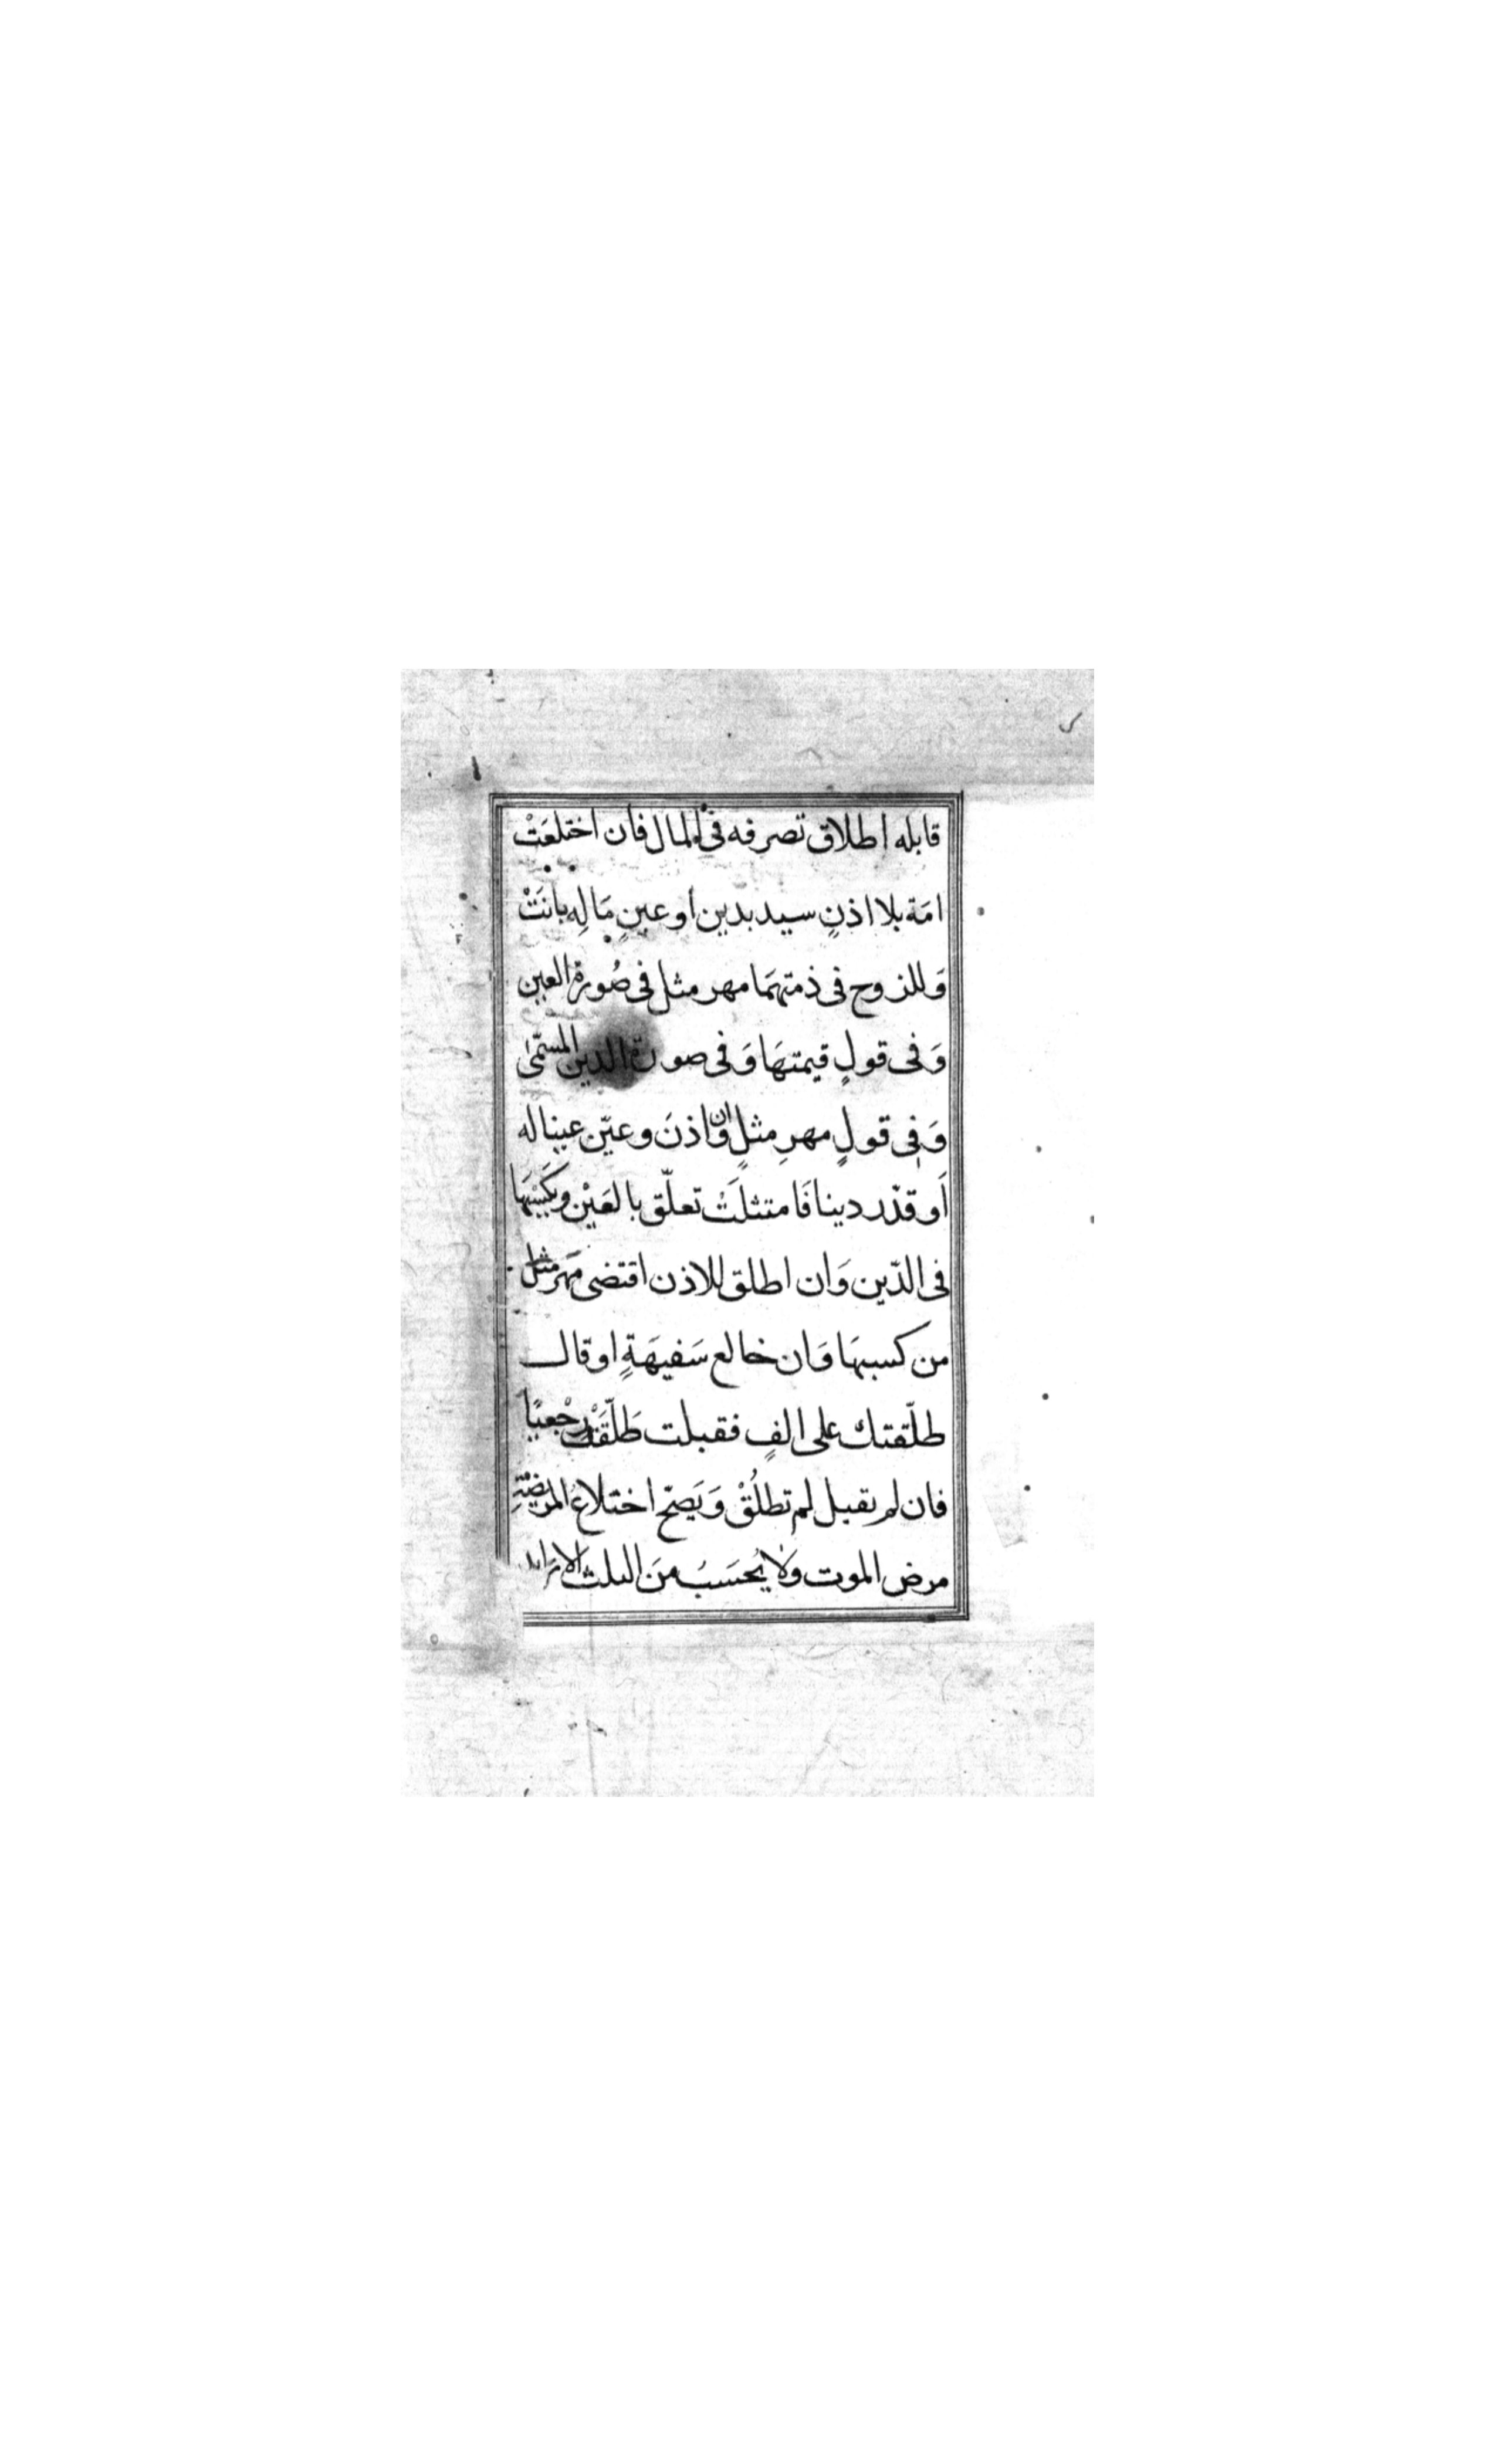 قابله اطلاق تصرفه فى المال فان اختلعَتْ
امَة بلا اذنٍ سيد بدين او عينٍ مَالِه بانَتْ
وَللزوج فى ذمتهمَا مهر مثل فى صُورة العين
وَفى قولٍ قيمتهَا وَفى صورة الدين المسمّى
وَفى قولٍ مهرِ مثلٍ وان اذنَ وعيّن عينا له
اَو قدّر دينا فَامتثلَتْ تعلّق بالعَيْن وبكَسْبهَا
فى الدّين وَان اطلق للاذن اقتضى مَهر مثل
من كسبهَا وَان خالع سَفيهَةٍ او قال
طلّقتك على الفٍ فقبلت طَلّقَتْ رجْعيًا
فان لم تقبل لم تطلُقْ وَيَصحّ اختلاعُ المريضَةِ
مرض الموت وَلا يُحسَبُ منَ الثلث الا زايد